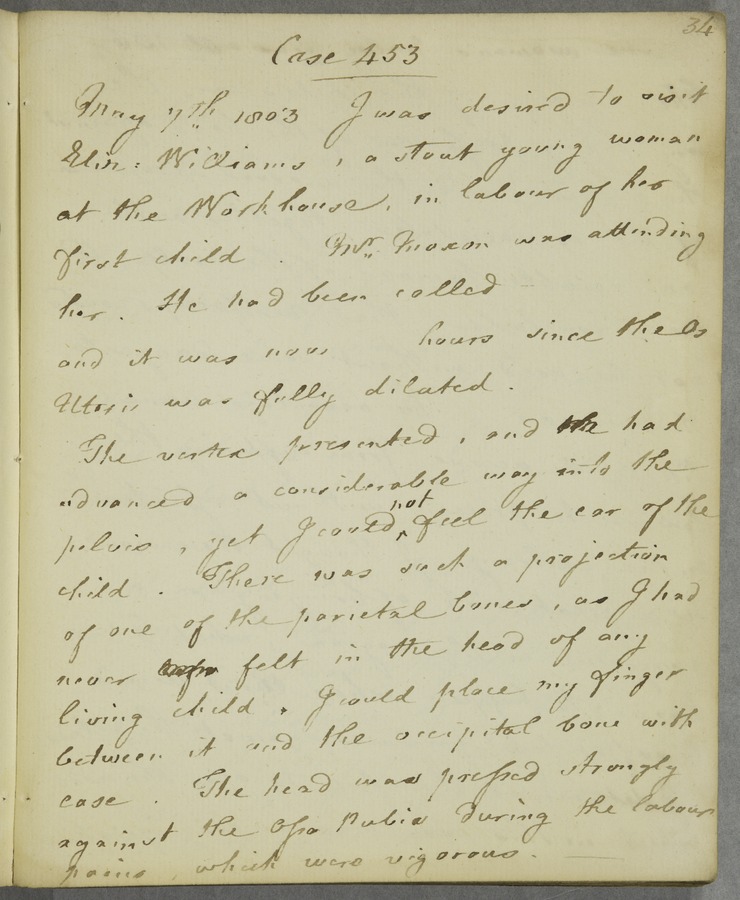 34
Case 453
May 7th 1803 I was desired to visit
Eliz: Williams, a stout young woman
at the Workhouse, in labour of her
first child. Mr. Moxon was attending
her. He had been called
and it was now hours since the Os
Uteri was fully dilated.
The vertex presented, and the had
advanced a considerable way into the
pelvis, yet I could not feel the ear of the
child. There was such a projection
of one of the parietal bones, as I had
never felt in the head of any
living child. I could place my finger
between it and the occipital bone with
ease. The head was pressed strongly
against the Ossa Pubis during the labour
pains, which were vigorous.